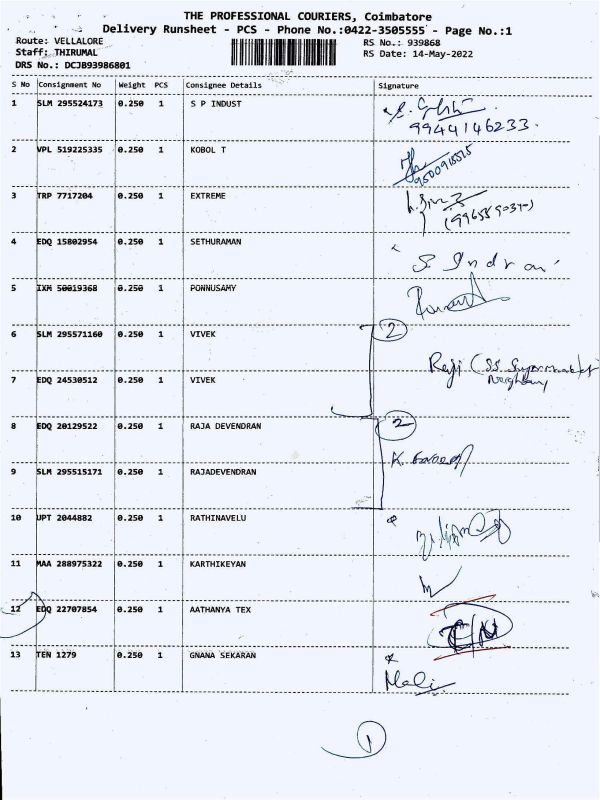 THE PROFESSIONAL COURIERS, Coimbatore
Delivery Runsheet - PCS - Phone No.:0422-3505555 - Page No.:1
Route: VELLALORE RS No.: 939868
Staff: THIRUMAL RS Date: 14-May-2022
DRS No.: DCJB93986801
S No Consignment No Weight PCS Consignee Details Signature
1 SLM 295524173 0.250 1 S P INDUST
9944146233.
2 VPL 519225335 0.250 1 KOBOL T
3 TRP 7717204 0.250 1 EXTREME
4 EDQ 15802954 0.250 1 SETHURAMAN
S. Indran
5 IXM 50019368 0.250 1 PONNUSAMY
2
6 SLM 295571160 0.250 1 VIVEK
Raji (SS Supermarket
7 EDQ 24530512 0.250 1 VIVEK
2
8 EDQ 20129522 0.250 1 RAJA DEVENDRAN
K.
9 SLM 295515171 0.250 1 RAJADEVENDRAN
10 UPT 2044882 0.250 1 RATHINAVELU
11 MAA 288975322 0.250 1 KARTHIKEYAN
12 EDQ 22707854 0.250 1 AATHANYA TEX
13 TEN 1279 0.250 1 GNANA SEKARAN
Mali
1